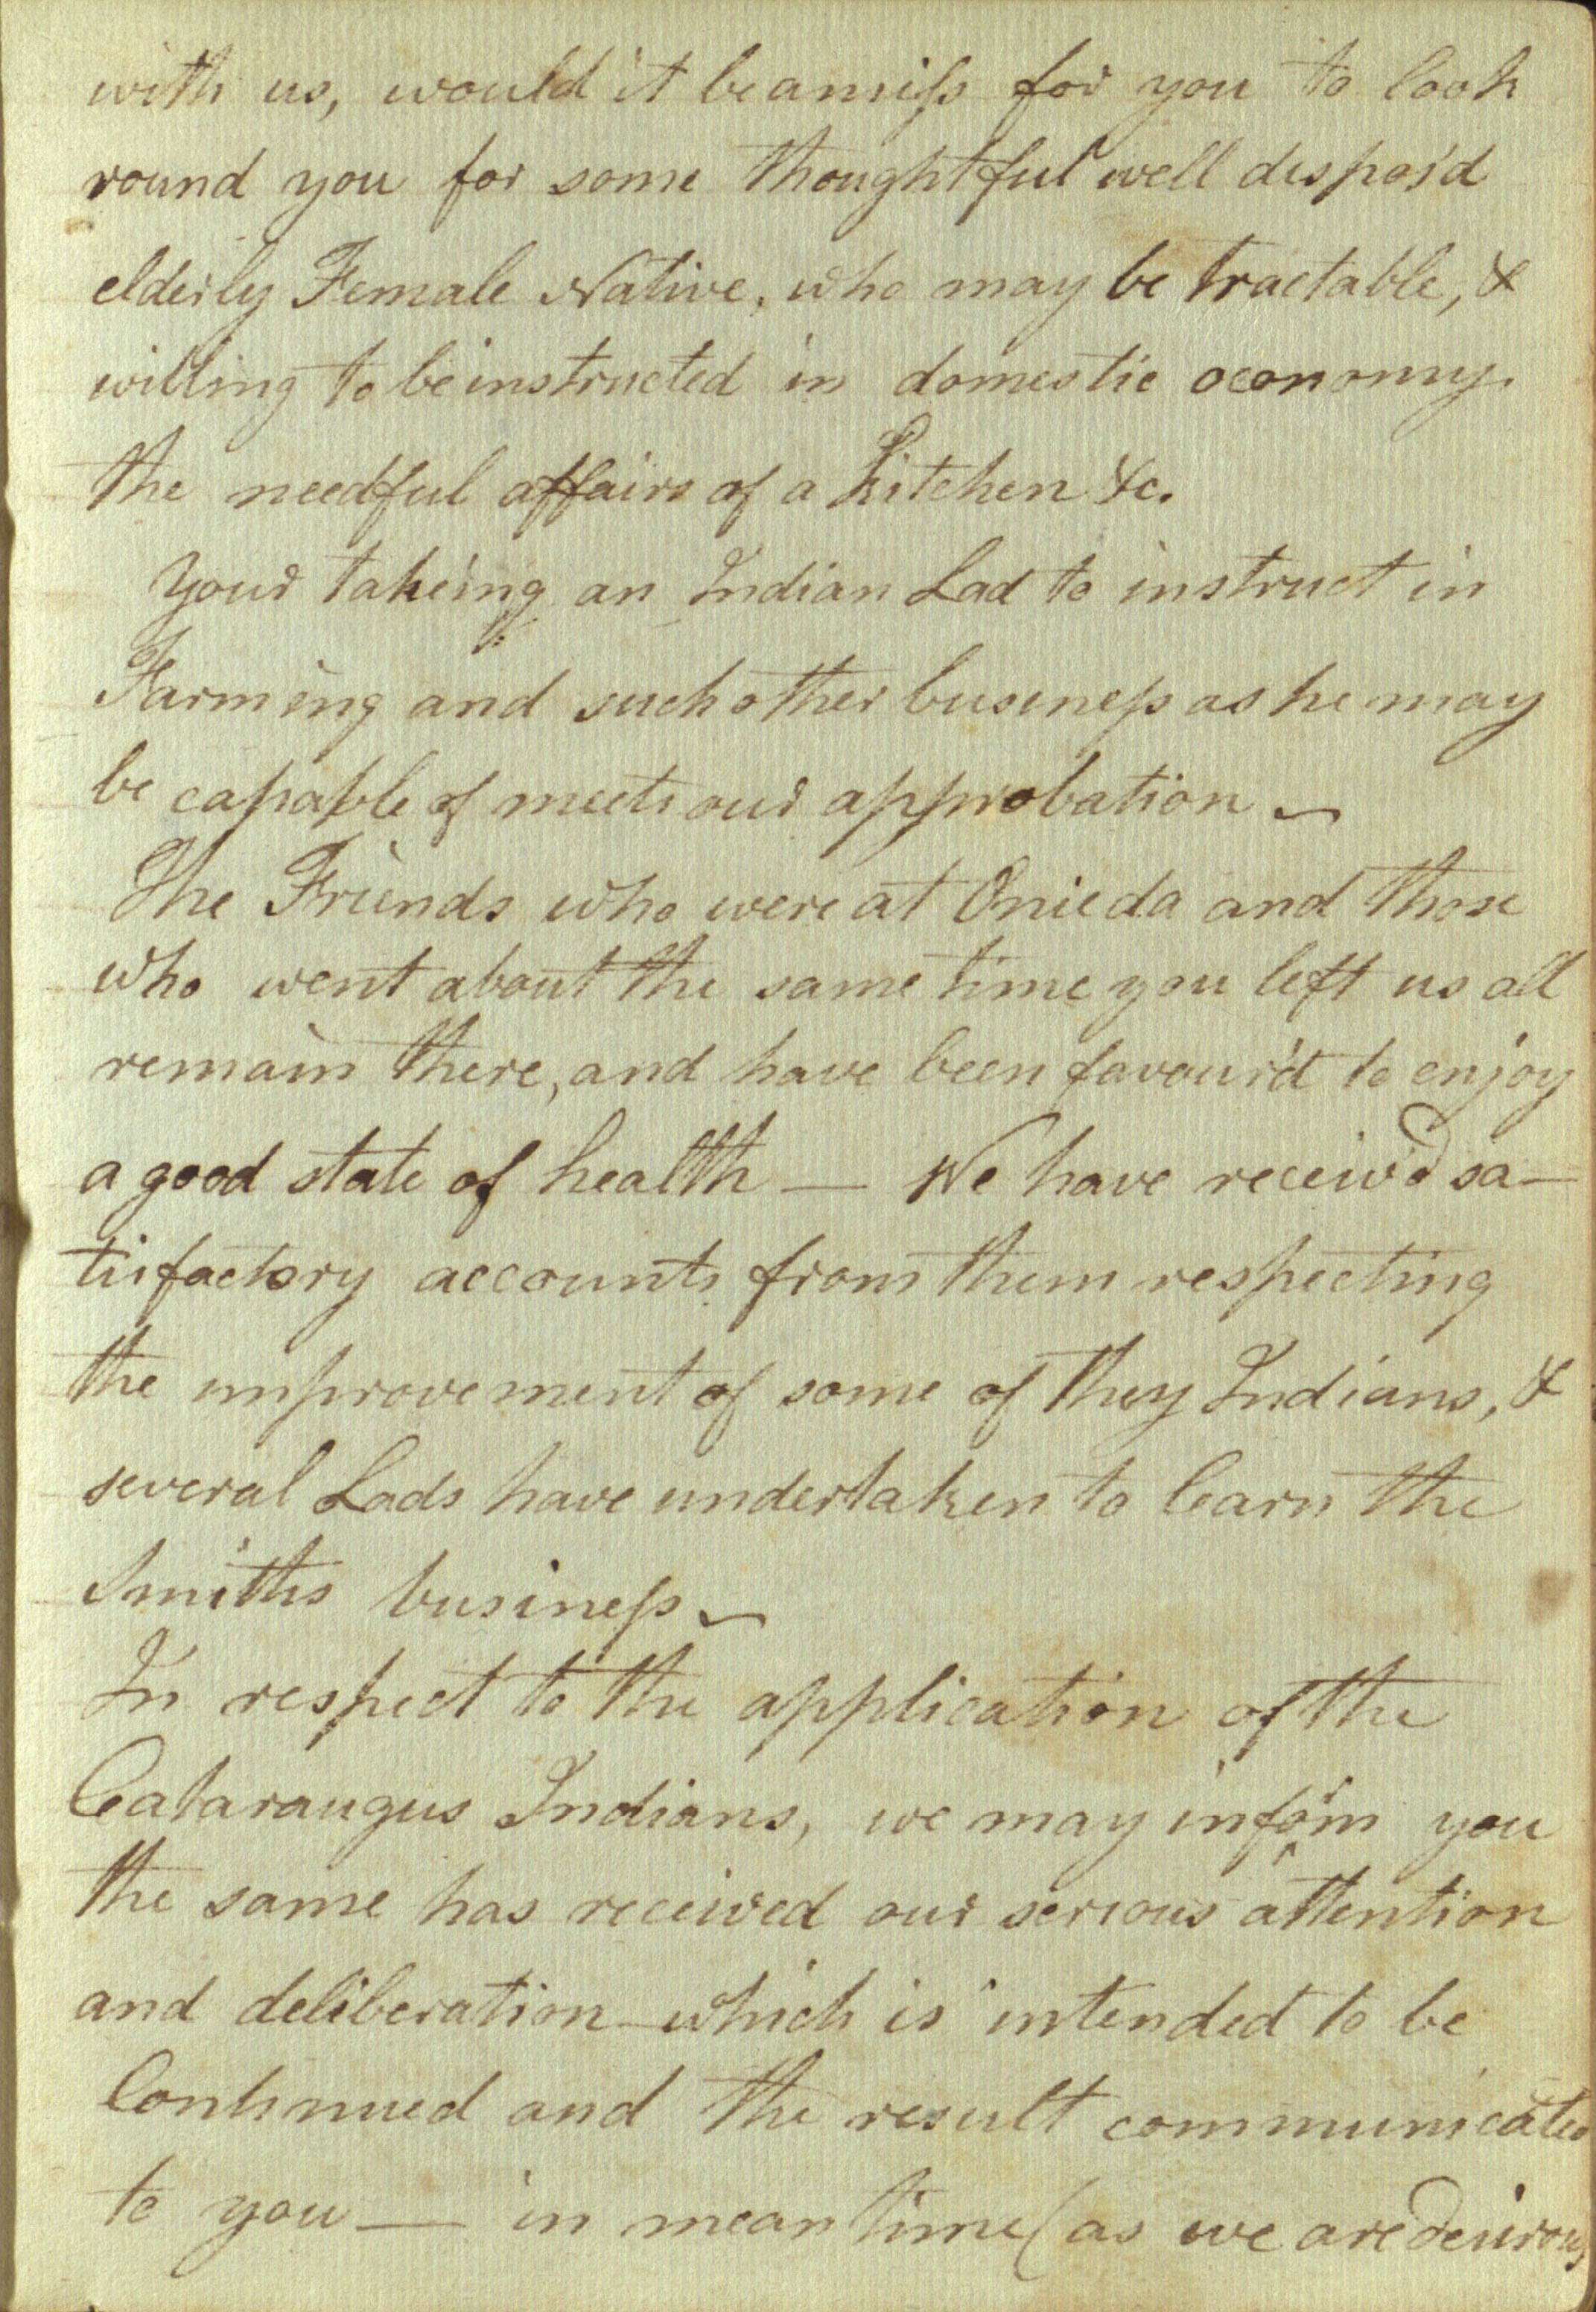 with us, would it be amiss for you to look
round you for some thoughtful well dispos'd
elderly Female Native, who may be tractable, &
willing to be instructed in domestic oconomy.
the needful affairs of a Kitchen &c.
Your takeing an Indian Lad to instruct in
Farming and such other business as he may
be capable of meets our approbation —
The Friends who were at Onieda and those
who went about the same time you left us all
remain there, and have been favour'd to enjoy
a good state of health — We have receiv'd sa-
tisfactory accounts from them respecting
the improvement of some of they Indians, &
several Lads have undertaken to learn the
Smiths business —
In respect to the application of the
Cataraugus Indians, we may inform you
the same has received our serious attention
and deliberation which is intended to be
Continued and the result communicated
to you — in mean time (as we are desirous